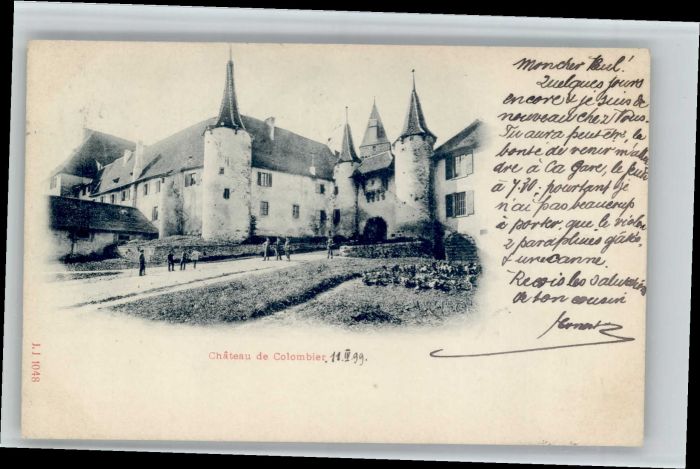 Mon cher Paul!
Quelques jours
encore & je suis de
nouveau chez Vous.
Tu aura peut être la
bonté de venir m'atten
dre à La Gare, le
à 7.30. pourtant je
n'ai pas beaucoup
à porter que le violon
2 parapluies gâtés
& une canne.
Recois les salutations
de ton cousin
Ernest
Château de Colombier 11. III 99.
J.J 1048